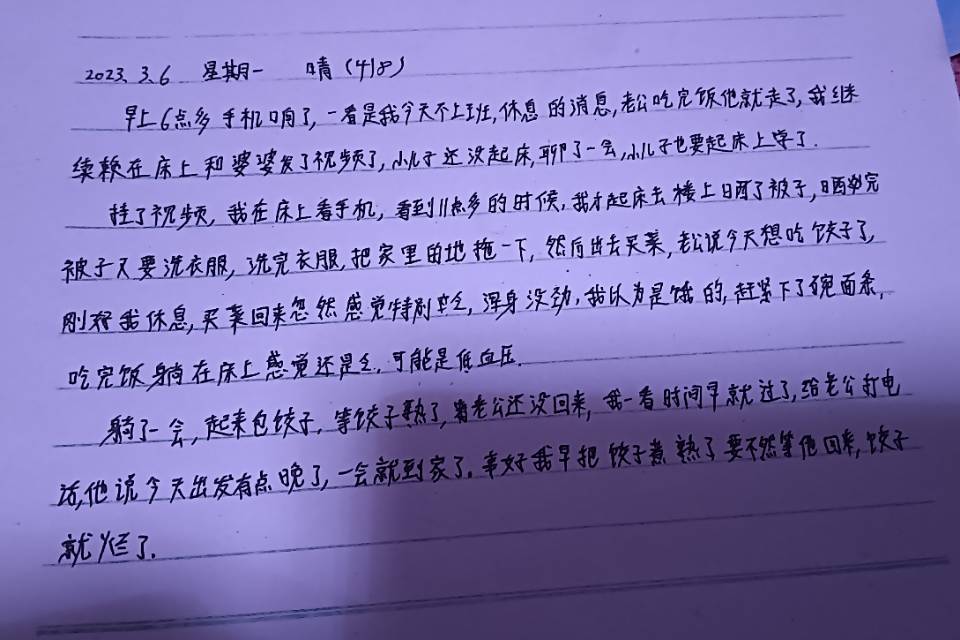 2023.3.6 星期一 晴(418)
早上6点多手机响了,一看是我今天不上班,休息的消息,老公吃完饭他就走了,我继
续躺在床上和婆婆发了视频了,小儿子还没起床,聊了一会,小儿子也要起床上学了.
挂了视频,我在床上看手机,看到11点多的时候,我才起床去楼上晒了被子,晒完
被子又要洗衣服,洗完衣服,把家里的地拖一下,然后出去买菜,老公说今天想吃饺子了,
刚好我休息,买菜回来忽然感觉特别乏,浑身没劲,我以为是饿的,赶紧下了碗面条,
吃完饭躺在床上感觉还是乏,可能是低血压.
躺了一会,起来包饺子,等饺子熟了,老公还没回来,我一看时间早就过了,给老公打电
话,他说今天出发有点晚了,一会就到家了.幸好我早把饺子煮熟了要不然等他回来,饺子
就烂了.